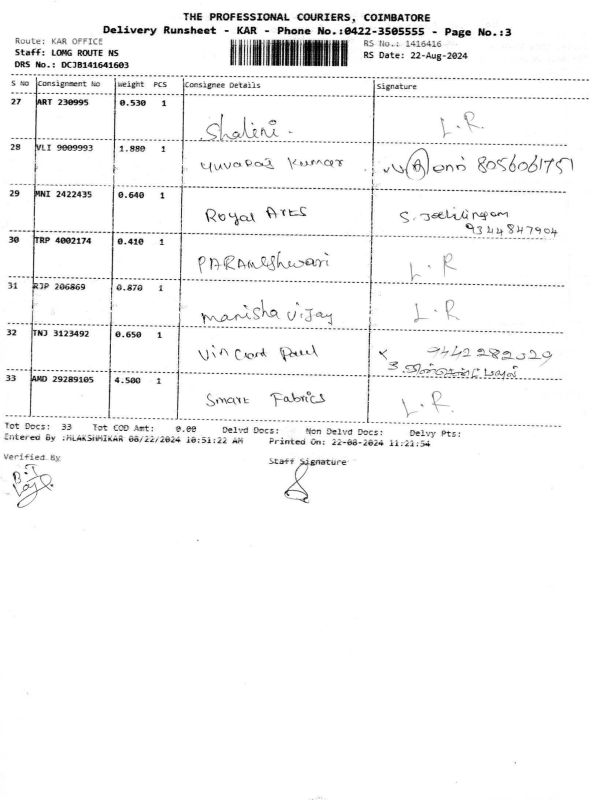 THE PROFESSIONAL COURIERS, COIMBATORE
Delivery Runsheet - KAR - Phone No.:0422-3505555 - Page No.:3
Route: KAR OFFICE
RS No.: 1416416
Staff: LOMG ROUTE NS
RS Date: 22-Aug-2024
DRS No.: DCJB141641603
S No Consignment No Weight PCS Consignee Details Signature
27 ART 230995 0.530 1
Shalini. L.R
28 VLI 9009993 1.880 1
Yuvaraj Kumar 8056061751
29 MNI 2422435 0.640 1
Royal Arts
9344847904
30 TRP 4002174 0.410 1
PARAMeshwari L.R
31 RJP 206869 0.870 1
Manisha Vijay L.R
32 TNJ 3123492 0.650 1
Vincent Paul 9442282029
33 AMD 29289105 4.500 1
Smart Fabrics L.R.
Tot Docs: 33 Tot COD Amt: 0.00 Delvd Docs: Non Delvd Docs: Delvy Pts:
Entered By :MLAKSHMIKAR 08/22/2024 10:51:22 AM Printed On: 22-08-2024 11:21:54
Verified By
Staff Signature